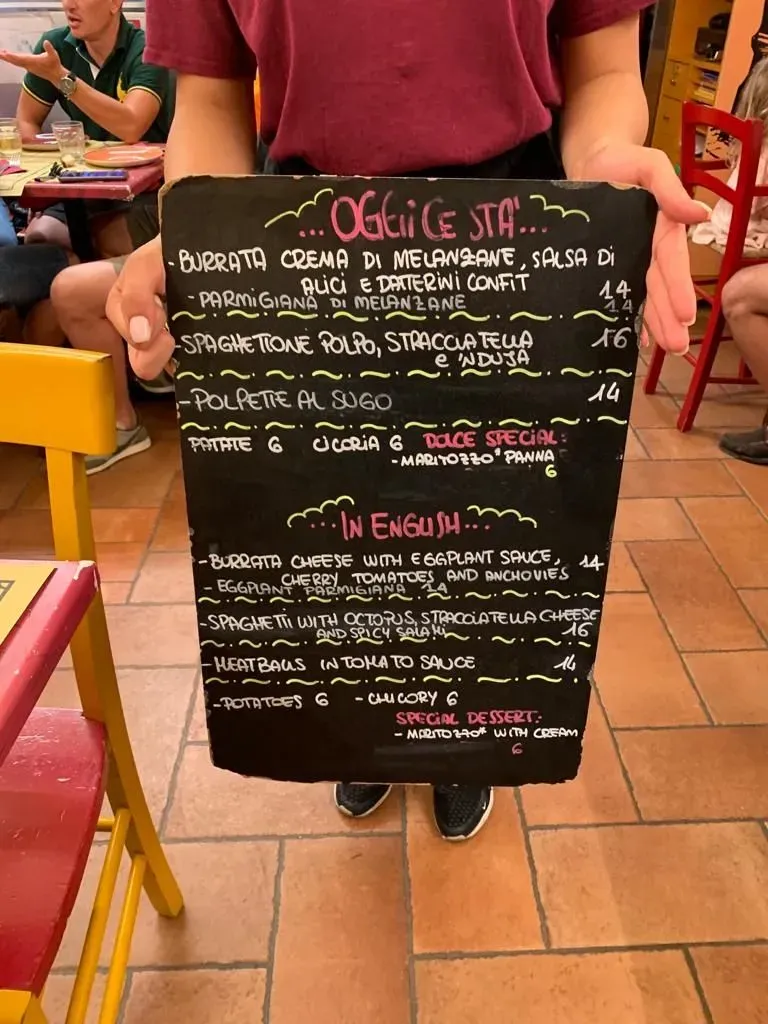 ...OGGI CE STA'...
- BURRATA CREMA DI MELANZANE, SALSA DI
ALICI E DATTERINI CONFIT 14
- PARMIGIANA DI MELANZANE 14
- SPAGHETTONE POLPO, STRACCIATELLA 16
e 'NDUJA
- POLPETTE AL SUGO 14
PATATE 6 CICORIA 6 DOLCE SPECIAL:
- MARITOZZO* PANNA
6
...IN ENGLISH...
- BURRATA CHEESE WITH EGGPLANT SAUCE, 14
CHERRY TOMATOES AND ANCHOVIES
- EGGPLANT PARMIGIANA 14
- SPAGHETTI WITH OCTOPUS, STRACCIATELLA CHEESE
AND SPICY SALAMI 16
- MEATBALLS IN TOMATO SAUCE 14
- POTATOES 6 - CHICORY 6
SPECIAL DESSERT:
- MARITOZZO* WITH CREAM
6